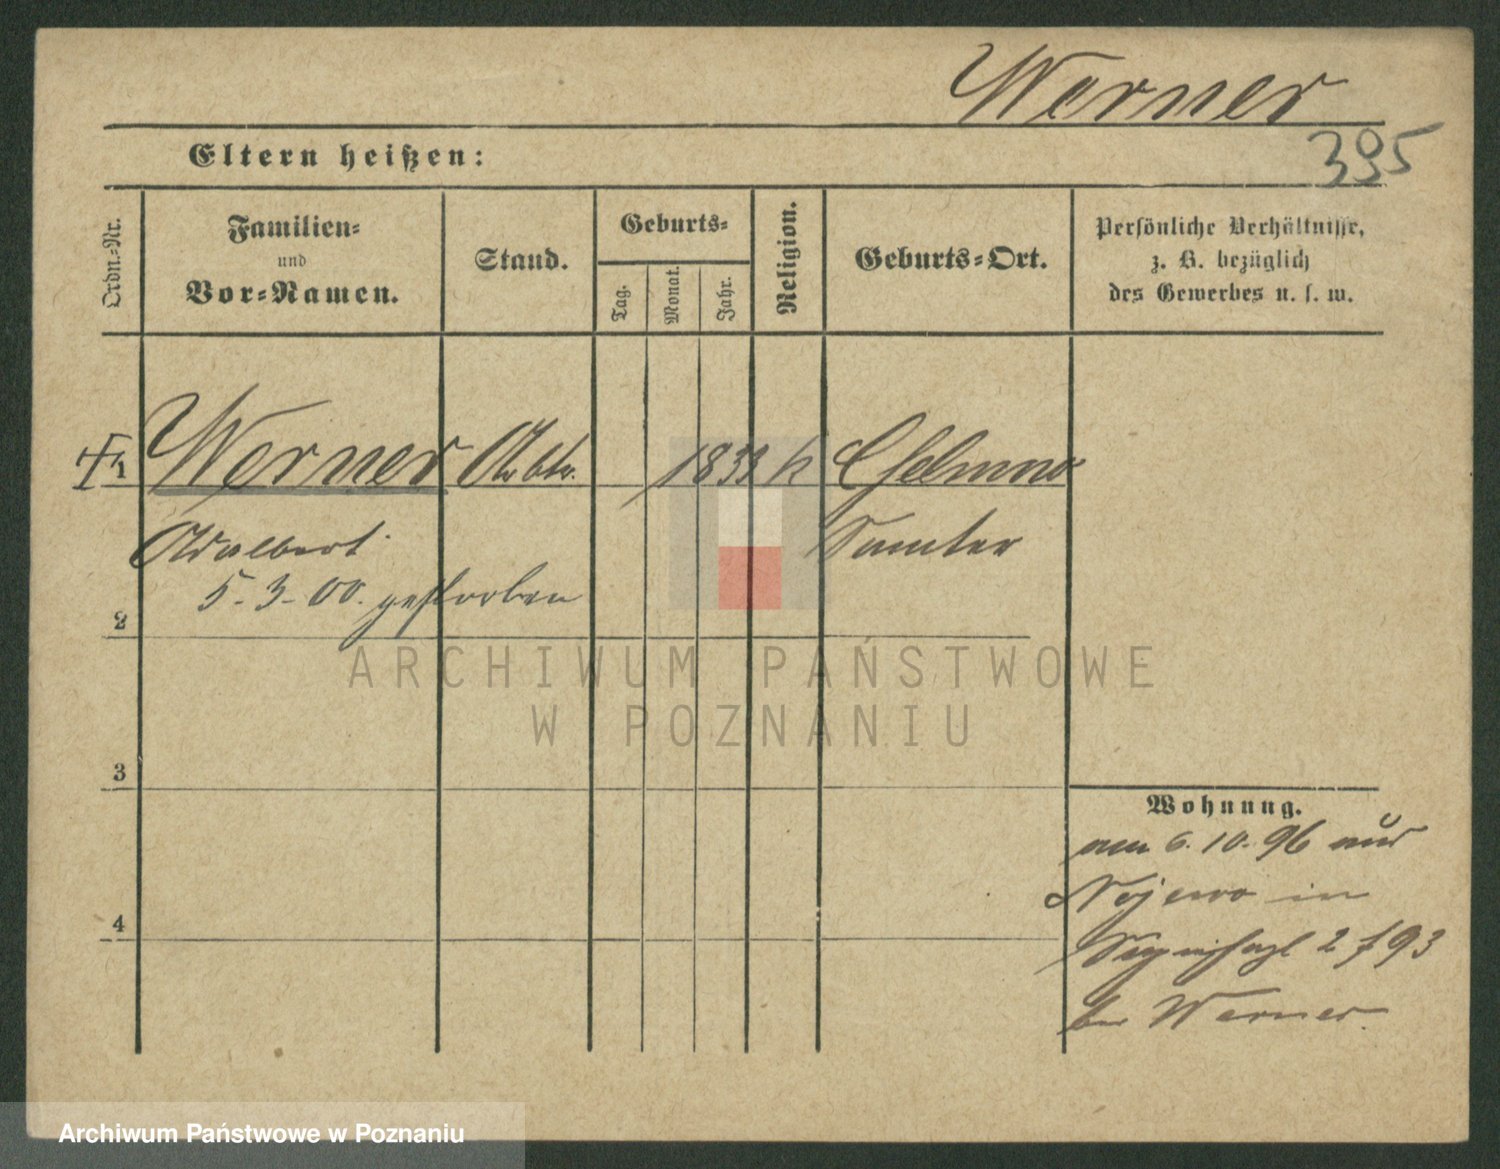 Werner
395
Eltern heißen:
Ordn.-Nr.
Familien-
und
Vor-Namen.
Stand.
Geburts-
Tag.
Monat.
Jahr.
Religion.
Geburts-Ort.
Persönliche Verhältnisse,
z. B. bezüglich
des Gewerbes u. s. w.
1 Werner Arbtr. 1833 k Chelmno
Adalbert Samter
5-3-00. gestorben
2
3
4
Wohnung.
am 6.10.96 aus
Nojewo in
2/93
bei Werner.
ARCHIWUM PAŃSTWOWE
W POZNANIU
Archiwum Państwowe w Poznaniu